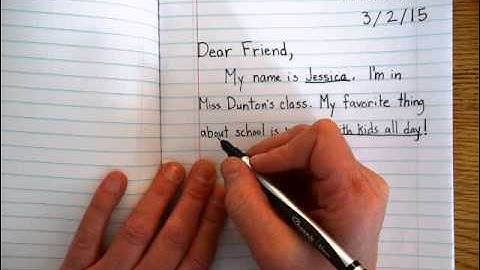 3/2/15
Dear Friend,
My name is Jessica. I'm in
Miss Dunton's class. My favorite thing
about school is with kids all day!